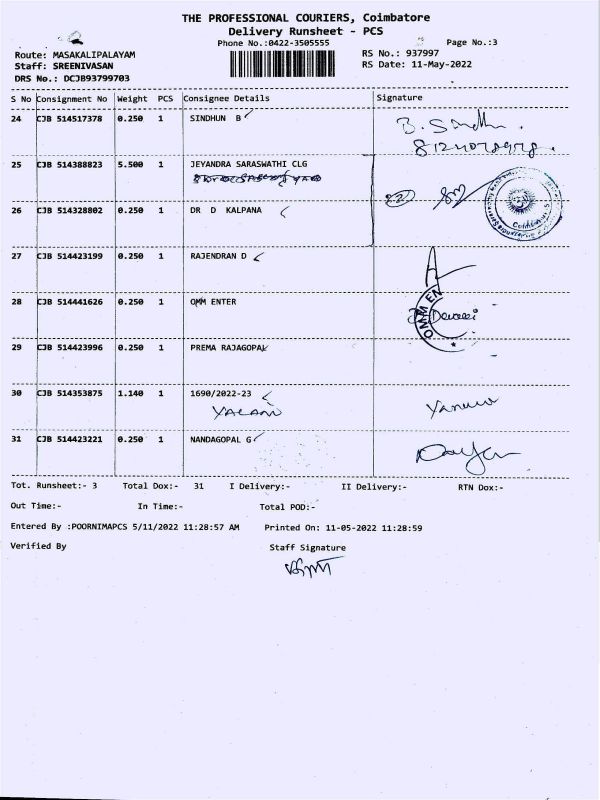 THE PROFESSIONAL COURIERS, Coimbatore
Delivery Runsheet - PCS
Phone No.:0422-3505555
Page No.:3
Route: MASAKALIPALAYAM
RS No.: 937997
Staff: SREENIVASAN
RS Date: 11-May-2022
DRS No.: DCJB93799703
S No Consignment No Weight PCS Consignee Details Signature
24 CJB 514517378 0.250 1 SINDHUN B
B. Sindhu .
25 CJB 514388823 5.500 1 JEYANDRA SARASWATHI CLG
26 CJB 514328802 0.250 1 DR D KALPANA
27 CJB 514423199 0.250 1 RAJENDRAN D
28 CJB 514441626 0.250 1 OMM ENTER
OMM EN
29 CJB 514423996 0.250 1 PREMA RAJAGOPAL
30 CJB 514353875 1.140 1 1690/2022-23
31 CJB 514423221 0.250 1 NANDAGOPAL G
Tot. Runsheet:- 3 Total Dox:- 31 I Delivery:- II Delivery:- RTN Dox:-
Out Time:- In Time:- Total POD:-
Entered By :POORNIMAPCS 5/11/2022 11:28:57 AM Printed On: 11-05-2022 11:28:59
Verified By Staff Signature